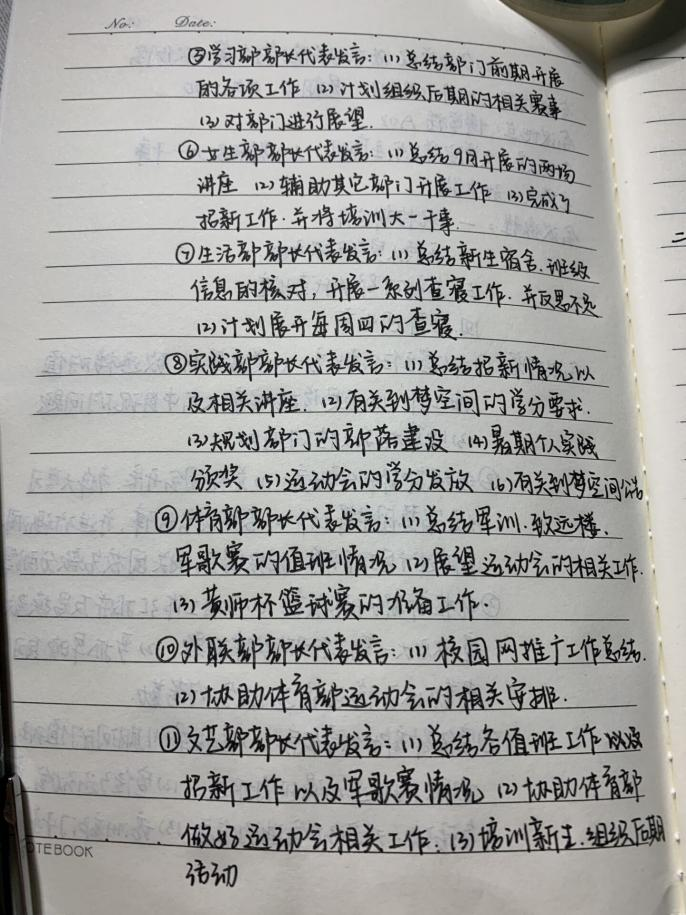 No:    Date:
⑤学习部部长代表发言：(1)总结部门前期开展
的各项工作 (2)计划组织后期的相关赛事
(3)对部门进行展望.
⑥女生部部长代表发言：(1)总结9月开展的两场
讲座 (2)辅助其它部门开展工作 (3)完成了
招新工作.并将培训大一干事.
⑦生活部部长代表发言：(1)总结新生宿舍.班级
信息的核对，开展一系列查寝工作.并反思不足
(2)计划展开每周四的查寝.
⑧实践部部长代表发言：(1)总结招新情况以
及相关讲座. (2)有关到梦空间的学分要求.
(3)规划部门的部落建设 (4)暑期个人实践
颁奖 (5)运动会的学分发放 (6)有关到梦空间公告
⑨体育部部长代表发言：(1)总结军训.致远楼.
军歌赛的值班情况 (2)展望运动会的相关工作.
(3)黄师杯篮球赛的准备工作.
⑩外联部部长代表发言：(1)校园网推广工作总结.
(2)协助体育部运动会的相关安排.
⑪文艺部部长代表发言：(1)总结各值班工作以及
招新工作以及军歌赛情况 (2)协助体育部
做好运动会相关工作. (3)培训新生.组织后期
活动
OTEBOOK
二